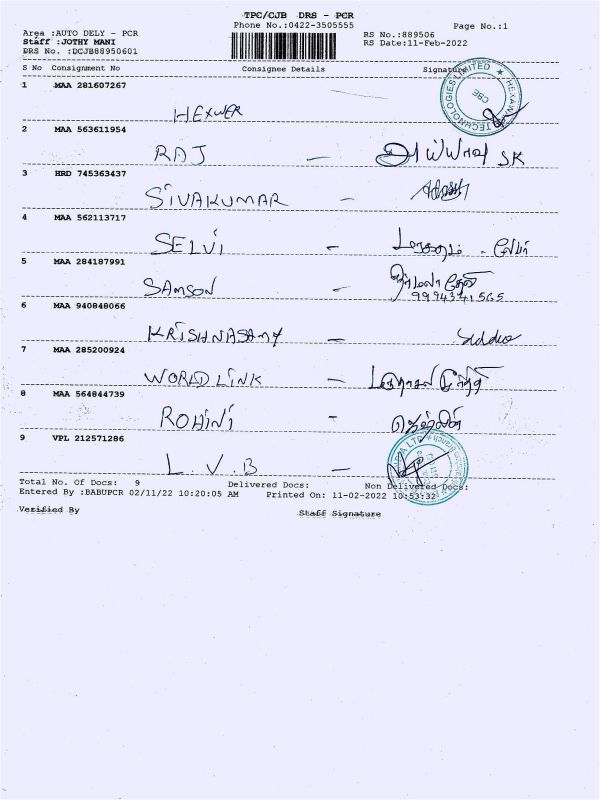 TPC/CJB DRS - PCR
Phone No.:0422-3505555
Page No.:1
Area :AUTO DELY - PCR
RS No.:889506
Staff :JOTHY MANI
RS Date:11-Feb-2022
DRS No. :DCJB88950601
S No Consignment No Consignee Details Signature
1 MAA 281607267
HEXWER
TECHNOLOGIES LIMITED ★ HEXAW
CBE
2 MAA 563611954
RAJ - SK
3 HRD 745363437
SIVAKUMAR -
4 MAA 562113717
SELVI -
5 MAA 284187991
SAMSON -
9994341565
6 MAA 940848066
KRISHNASAMY -
7 MAA 285200924
WORLD LINK -
8 MAA 564844739
ROHINI -
9 VPL 212571286
L.V.B -
Total No. Of Docs: 9 Delivered Docs: Non Delivered Docs:
Entered By :BABUPCR 02/11/22 10:20:05 AM Printed On: 11-02-2022 10:53:32
Verified By Staff Signature